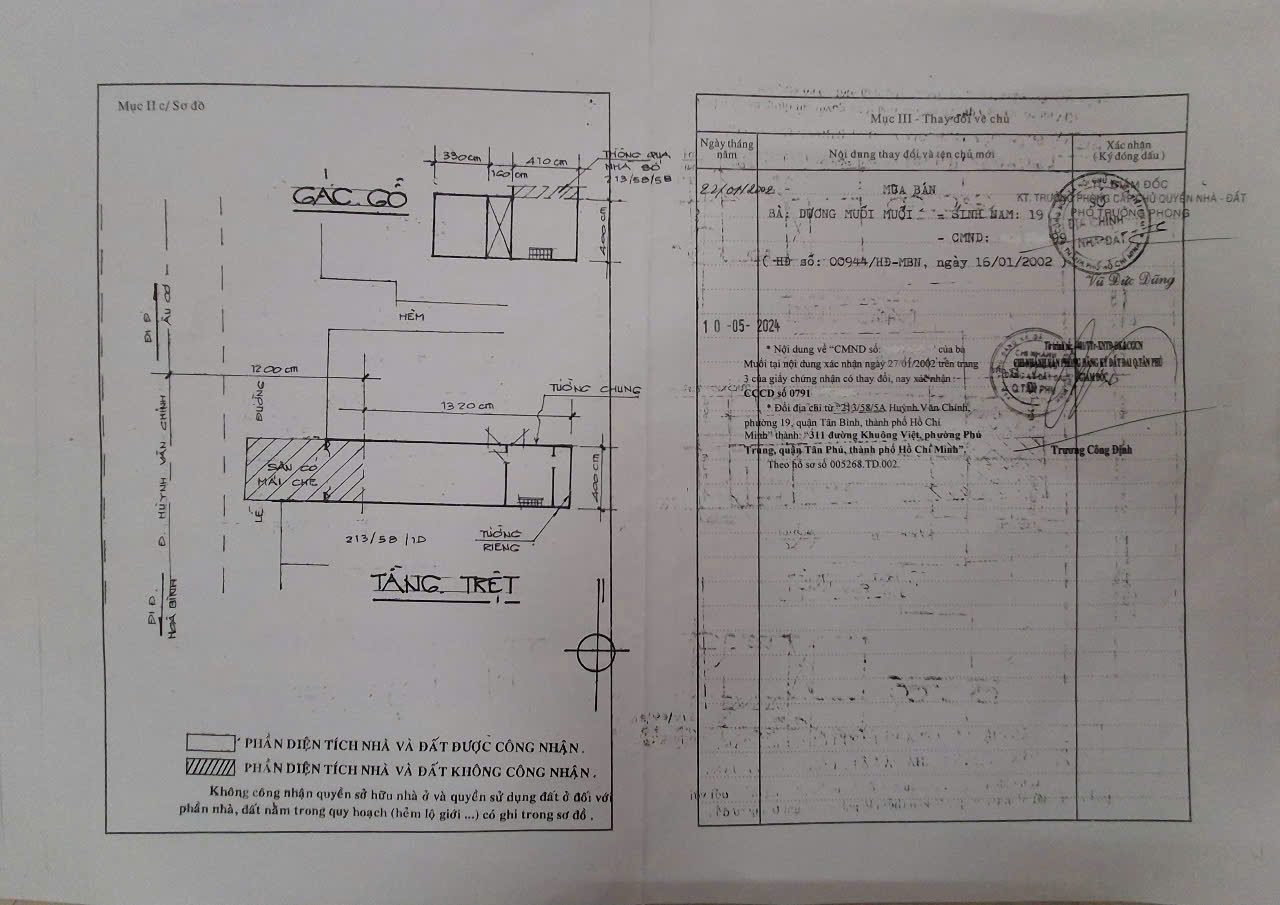 Mục II c/ Sơ đồ
330cm
160cm
410cm
THÔNG QUA
NHÀ SỐ
213/58/5B
GÁC GỖ
400cm
ĐI Đ.
ÂU CƠ
HẺM
1200cm
ĐƯỜNG
1320cm
TƯỜNG CHUNG
Đ. HUỲNH VĂN CHÍNH
SÂN CÓ
MÁI CHE
400cm
LỀ
213/58/1D
TƯỜNG
RIÊNG
TẦNG TRỆT
ĐI Đ.
HOÀ BÌNH
PHẦN DIỆN TÍCH NHÀ VÀ ĐẤT ĐƯỢC CÔNG NHẬN.
PHẦN DIỆN TÍCH NHÀ VÀ ĐẤT KHÔNG CÔNG NHẬN.
Không công nhận quyền sở hữu nhà ở và quyền sử dụng đất ở đối với
phần nhà, đất nằm trong quy hoạch (hẻm lộ giới ...) có ghi trong sơ đồ.
Mục III - Thay đổi về chủ
Ngày tháng
năm
Nội dung thay đổi và tên chủ mới
Xác nhận
(Ký đóng dấu)
MUA BÁN
GIÁM ĐỐC
KT. TRƯỞNG PHÒNG CẤP CHỦ QUYỀN NHÀ - ĐẤT
PHÓ TRƯỞNG PHÒNG
BÀ: DƯƠNG MUỐI MUỐI - SINH NĂM: 19
- CMND:
ĐỊA CHÍNH
NHÀ ĐẤT
( HĐ số: 00944/HĐ-MBN, ngày 16/01/2002 )
Vũ Đức Dũng
10-05-2024
* Nội dung về "CMND số: của bà
Muối tại nội dung xác nhận ngày 27/01/2002 trên trang
3 của giấy chứng nhận có thay đổi, nay xác nhận :
CCCD số 0791
* Đổi địa chỉ từ "213/58/5A Huỳnh Văn Chính,
phường 19, quận Tân Bình, thành phố Hồ Chí
Minh" thành: "311 đường Khuông Việt, phường Phú
Trung, quận Tân Phú, thành phố Hồ Chí Minh".
Theo hồ sơ số 005268.TD.002.
CHI NHÁNH VĂN PHÒNG ĐĂNG KÝ ĐẤT ĐAI Q.TÂN PHÚ
GIÁM ĐỐC
Q.TÂN PHÚ
Trương Công Định